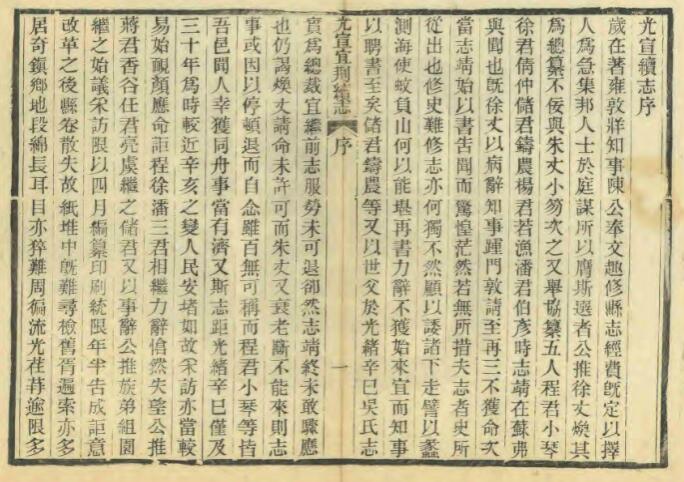 光宣續志序
歲在著雍敦牂知事陳公奉文趣修縣志經費既定以擇
人為急集邦人士於庭謀所以膺斯選者公推徐丈煥其
為總纂不佞與朱丈小芴次之又舉協纂五人程君小琴
徐君倩仲儲君鑄農楊君若漁潘君伯彥時志靖在蘇弗
與聞也既徐丈以病辭知事踵門敦請至再三不獲命次
當志靖始以書告聞而驚惶茫然若無所措夫志者史所
從出也修史難修志亦何獨不然顧以諉諸下走譬以蠡
測海使蚊負山何以能堪再書力辭不獲始來宜而知事
以聘書至矣儲君鑄農等又以世父於光緒辛巳吳氏志
光宣宜荆續志 序 一
實為總裁宜繼前志服勞未可退卻然志靖終未敢驟應
也仍謁煥丈請命未許可而朱丈又衰老斷不能來則志
事或因以停頓退而自念雖百無可稱而程君小琴等皆
吾邑聞人幸獲同舟事當有濟又斯志距光緒辛巳僅及
三十年為時較近辛亥之變人民安堵如故采訪亦當較
易始靦顏應命詎程徐潘三君相繼力辭愴然失望公推
蔣君香谷任君亮虞繼之儲君又以事辭公推族弟組園
繼之始議采訪限以四月編纂印刷統限年半告成詎意
改革之後縣卷散失故紙堆中既難尋檢舊胥遍索亦多
居奇鎮鄉地段綿長耳目亦猝難周徧流光荏苒逾限多